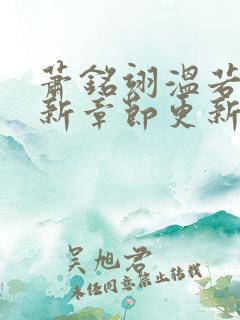 萧銘翊溫若
新章節更新
吴旭君
未经同意禁止转载